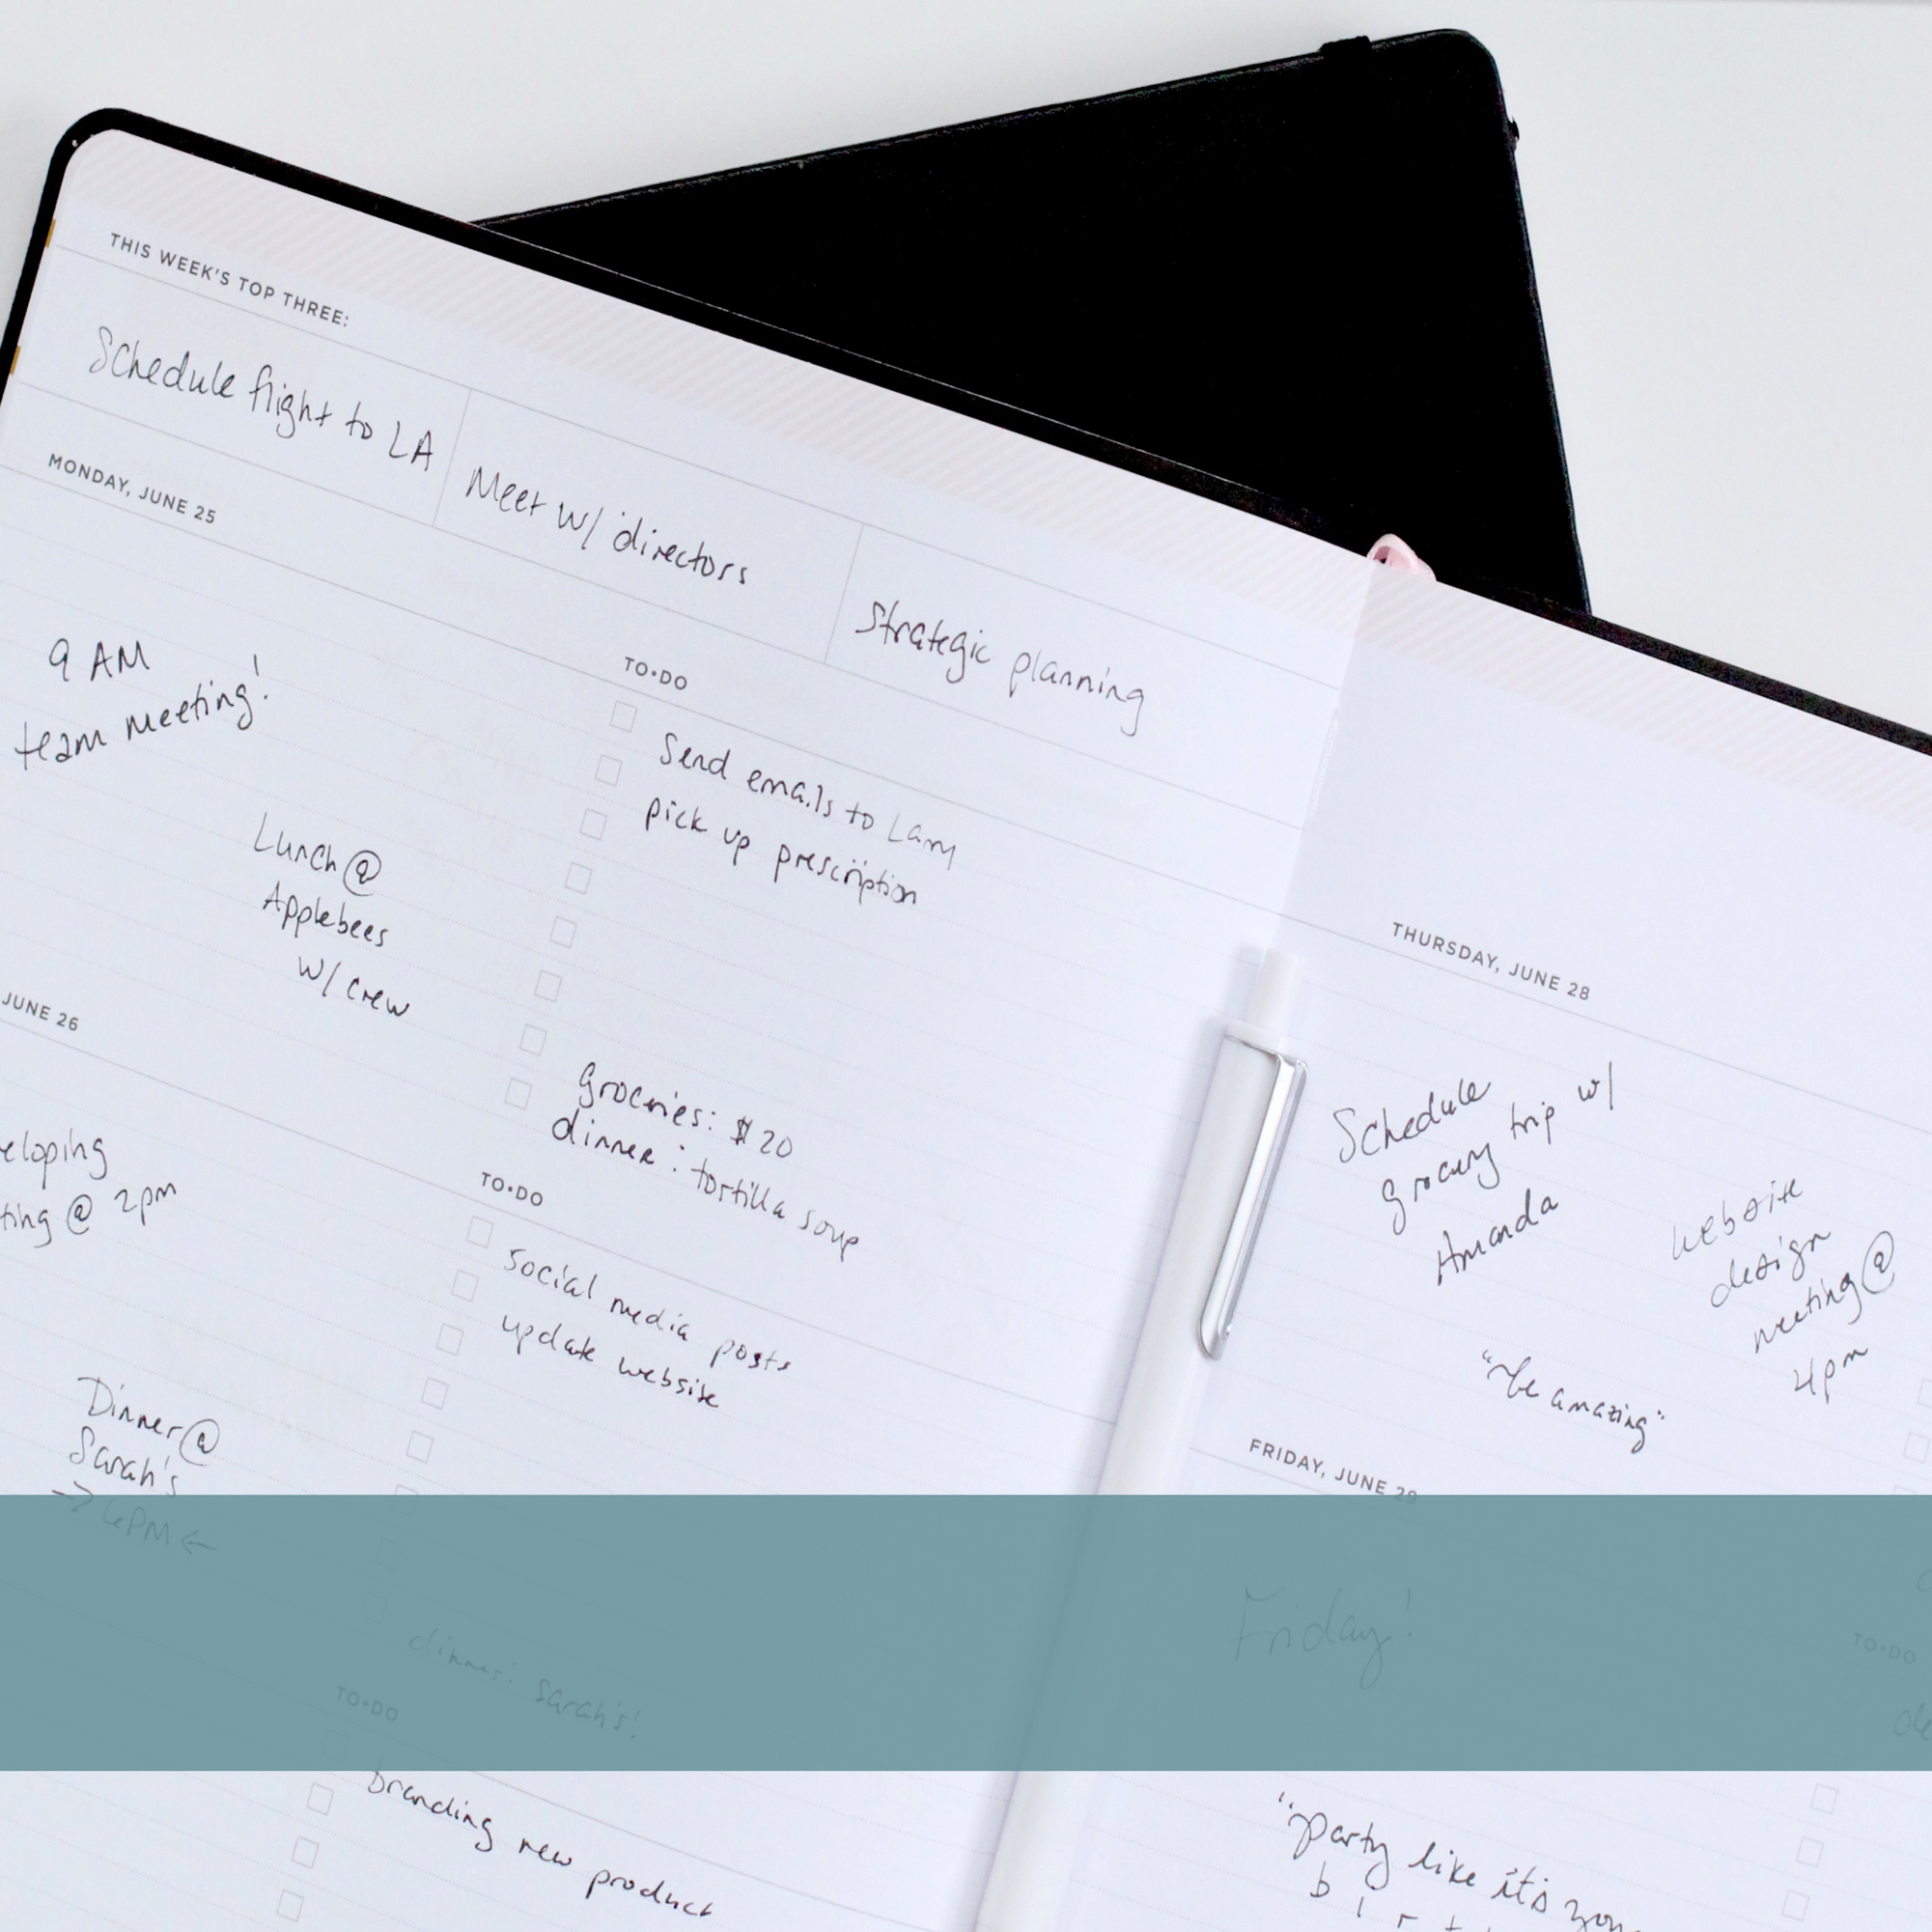 THIS WEEK'S TOP THREE:
Schedule flight to LA
Meet w/ directors
Strategic planning
MONDAY, JUNE 25
9 AM
team meeting!
Lunch @
Applebees
w/ crew
TO•DO
Send emails to Larry
pick up prescription
groceries: $20
dinner: tortilla soup
JUNE 26
eloping
ting @ 2pm
Dinner @
Sarah's
→ 6PM ←
TO•DO
social media posts
update website
dinner: Sarah's!
TO•DO
branding new product
THURSDAY, JUNE 28
Schedule
grocery trip w/
Amanda
website
design
meeting @
4pm
"be amazing"
FRIDAY, JUNE 29
Friday!
TO•DO
"party like it's